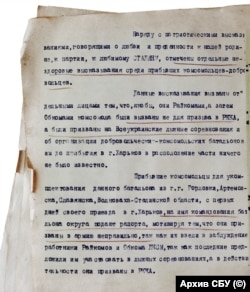 Наряду с патриотическими высказы-
ваниями, говорящими о любви и преданности к нашей роди-
не, к партии, к любимому СТАЛИНУ, отмечены отдельные не-
здоровые высказывания среди прибывших комсомольцев-добро-
вольцев.
Данные высказывания вызваны от-
дельными лицами тем, что якобы, они Райкомами, а затем
Обкомами комсомола были вызваны не для призыва в РККА,
а были призваны на Всеукраинские лыжные соревнования и
об организации добровольческих-комсомольских батальонов
им до прибытия в г. Харьков в расположение части ничего
не было известно.
Прибывшие комсомольцы для уком-
плектования лыжного батальона из г.г. Горловки, Артемов-
ска, Славянска, Ворошилов-Сталинской области, с первых
дней своего приезда в г. Харьков, на имя командования ба-
тальона округа подают рапорта, мотивируя тем, что они при-
званы в армию неправильно, так как их ввели в заблуждение
работники Райкомов и Обкома ЛКСМ, так как последние предло-
жили им участвовать в лыжных соревнованиях, а в действи-
тельности они призваны в РККА.
Архив СБУ (©)